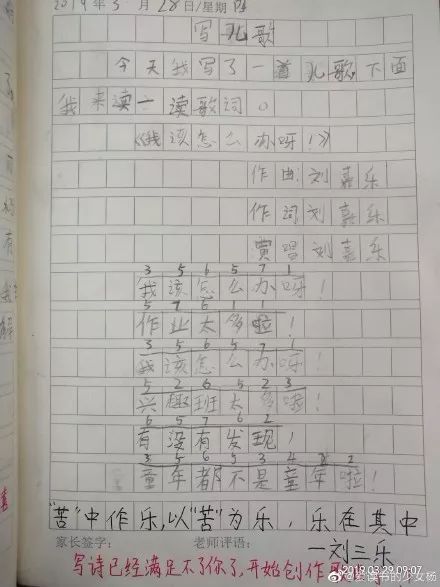 2019年3月28日/星期四
写儿歌
今天我写了一首儿歌,下面
我来读一读歌词。
《我该怎么办呀!》
作曲:刘嘉乐
作词刘嘉乐
演唱刘嘉乐
3 5 6 5 7 1
我该怎么办呀!
5 7 6 1 1
作业太多啦!
3 5 6 5 7 1
我该怎么办呀!
5 2 6 5 2 3
兴趣班太多啦!
6 5 7 6 2
有没有发现!
3 5 6 5 3 4 2
童年都不是童年啦!
"苦"中作乐,以"苦"为乐,乐在其中
—刘三乐
家长签字: 老师评语:
写诗已经满足不了你了,开始创作
@爱读书的少女杨
2019.03.29 09:07